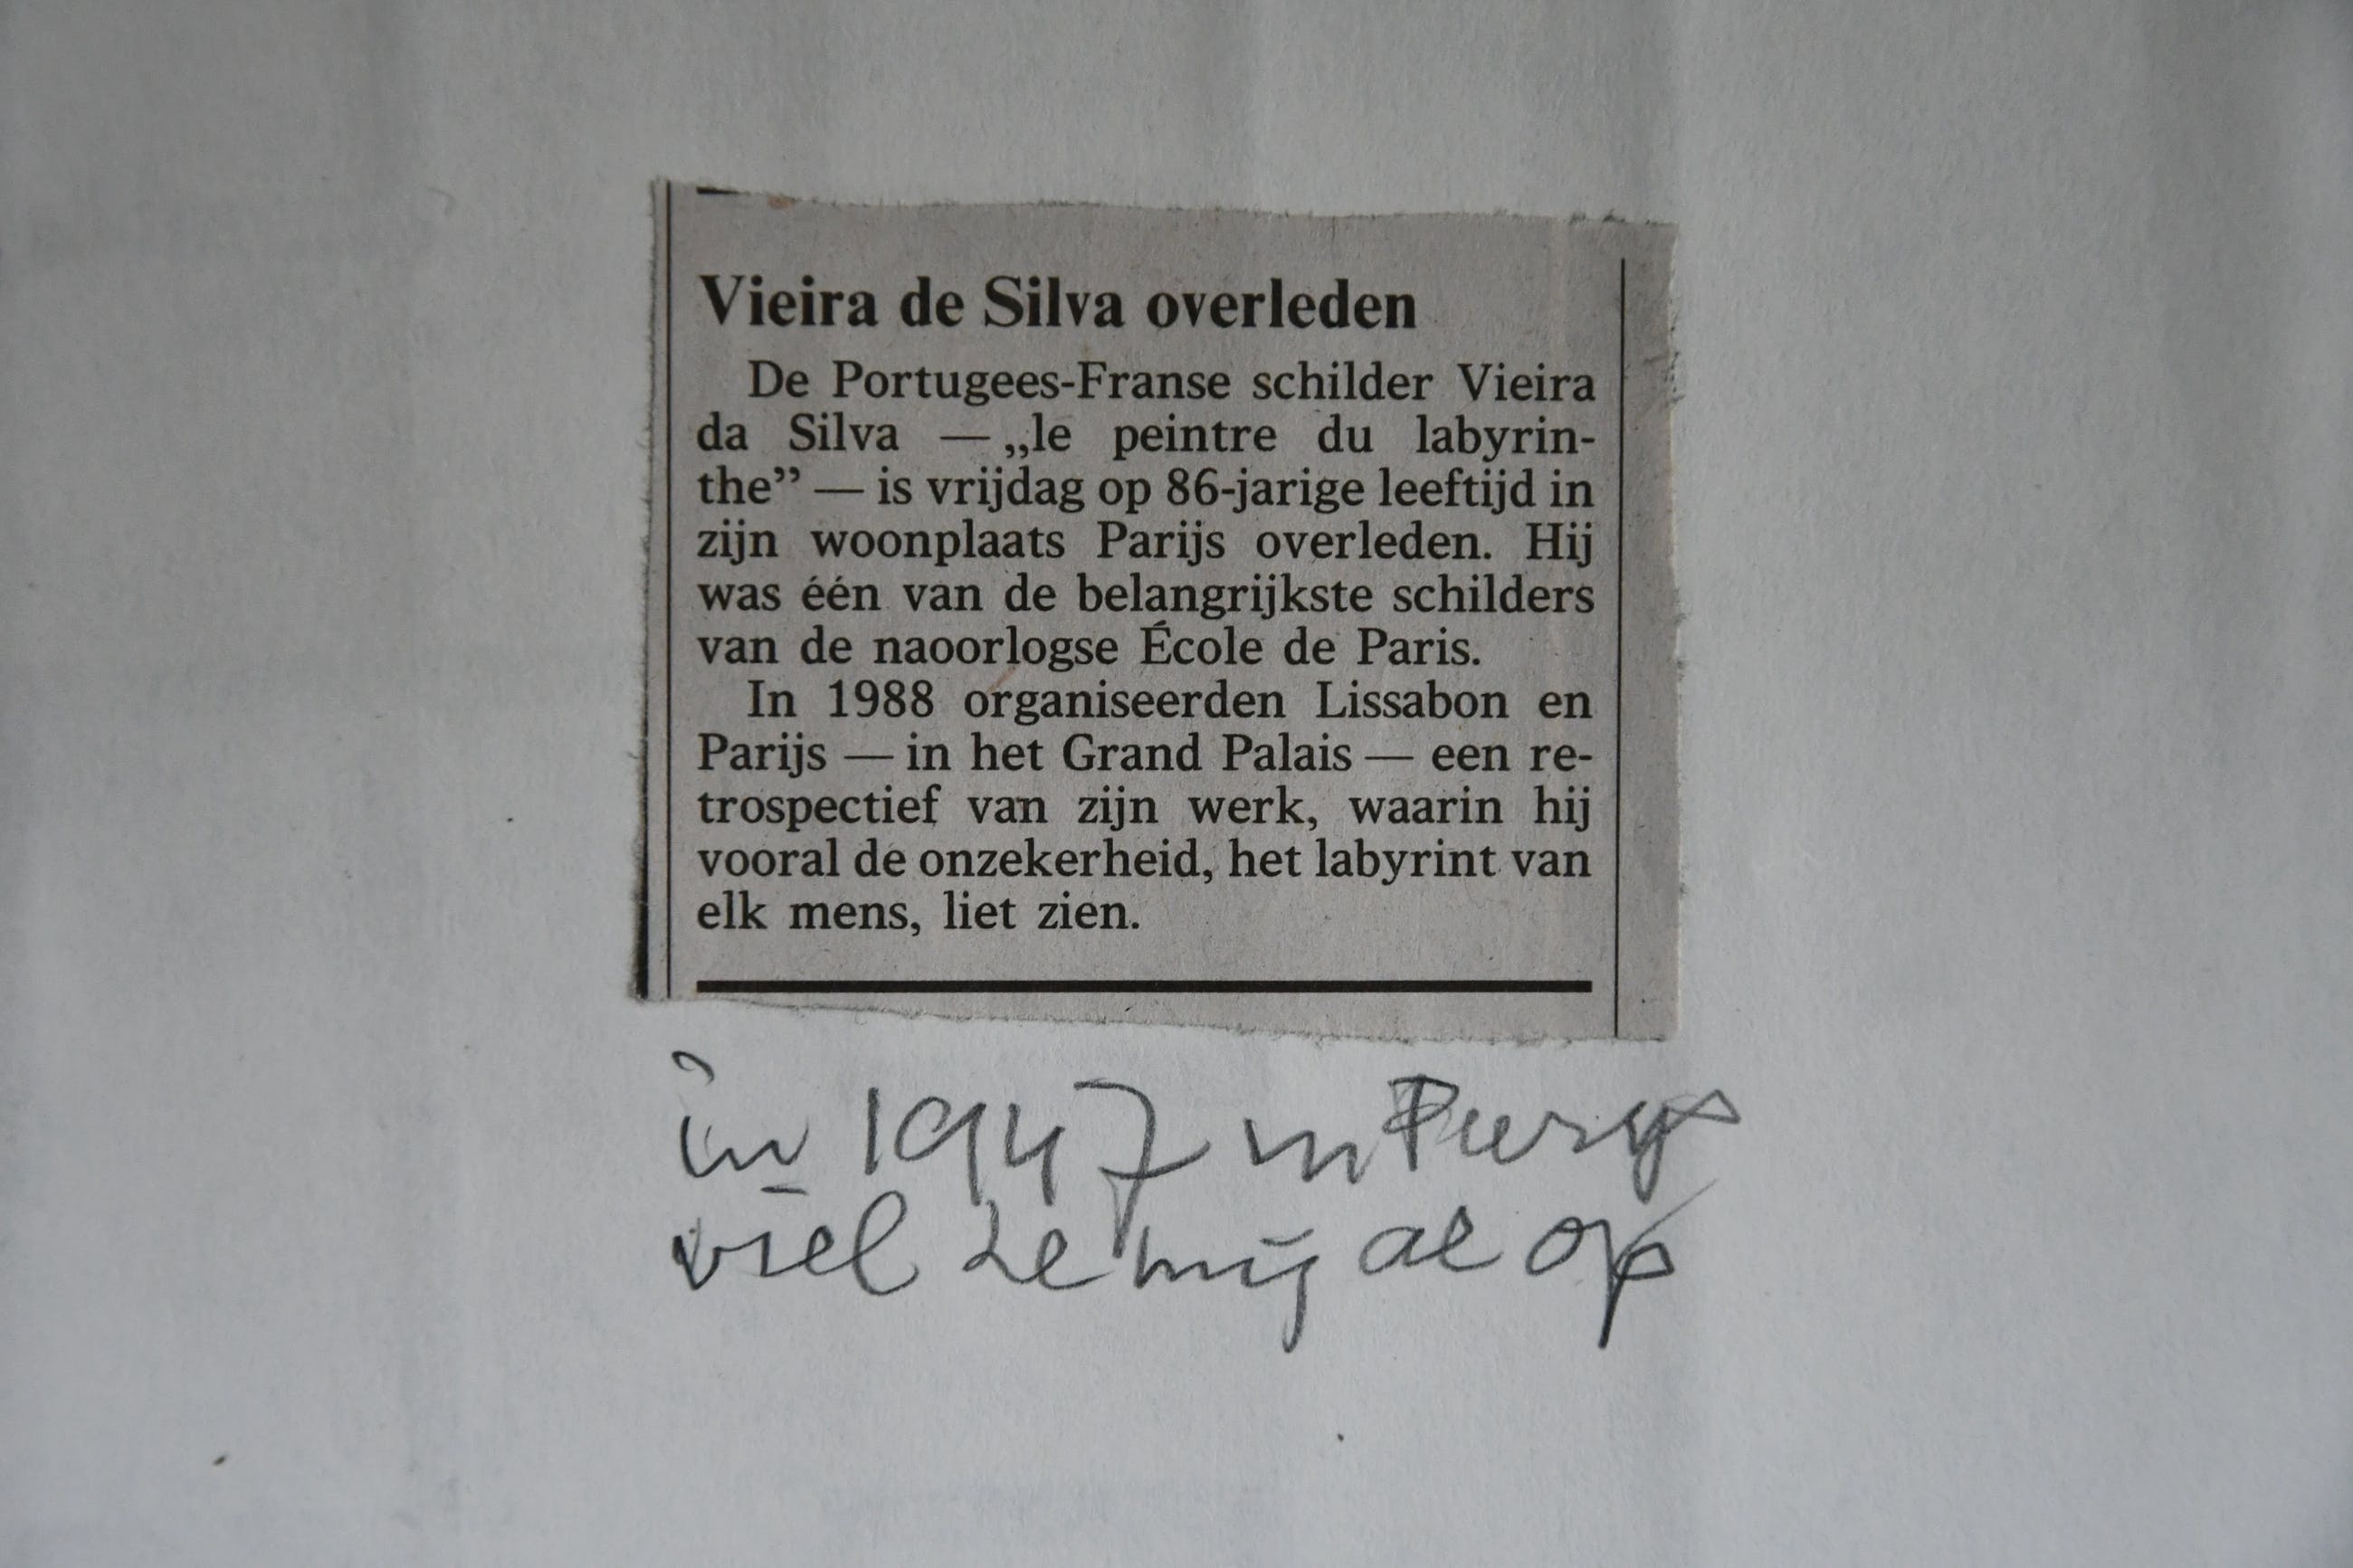 Vieira de Silva overleden
De Portugees-Franse schilder Vieira
da Silva — „le peintre du labyrin-
the” — is vrijdag op 86-jarige leeftijd in
zijn woonplaats Parijs overleden. Hij
was één van de belangrijkste schilders
van de naoorlogse École de Paris.
In 1988 organiseerden Lissabon en
Parijs — in het Grand Palais — een re-
trospectief van zijn werk, waarin hij
vooral de onzekerheid, het labyrint van
elk mens, liet zien.
in 1947 in Parijs
viel ze mij al op